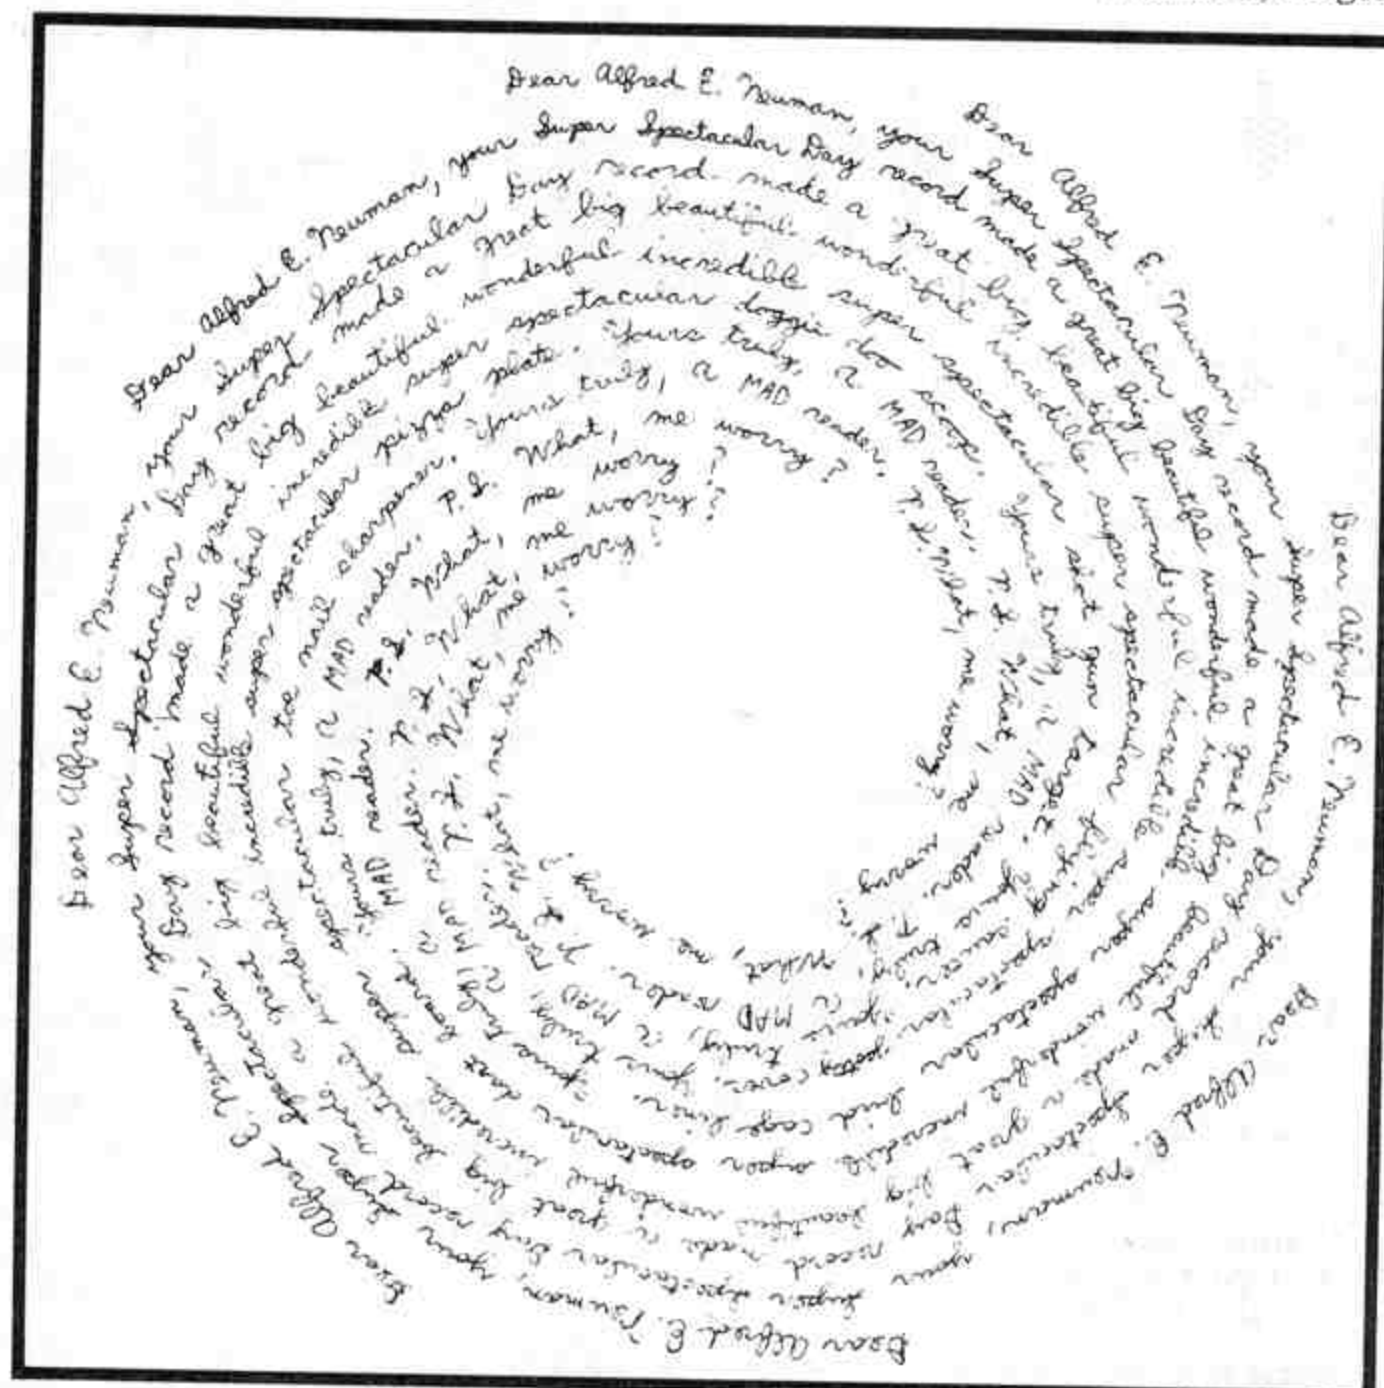 Dear Alfred E. Neuman, your Super Spectacular Day record made a great big beautiful wonderful incredible super spectacular bird cage liner. Yours truly, a MAD reader. P.S. What, me worry?
Dear Alfred E. Neuman, your Super Spectacular Day record made a great big beautiful wonderful incredible super spectacular dart board. Yours truly, a MAD reader. P.S. What, me worry?
Dear Alfred E. Neuman, your Super Spectacular Day record made a great big beautiful wonderful incredible super spectacular toe nail sharpener. Yours truly, a MAD reader. P.S. What, me worry?
Dear Alfred E. Neuman, your Super Spectacular Day record made a great big beautiful wonderful incredible super spectacular pizza plate. Yours truly, a MAD reader. P.S. What, me worry?
Dear Alfred E. Neuman, your Super Spectacular Day record made a great big beautiful wonderful incredible super spectacular doggie doo scoop. Yours truly, a MAD reader. P.S. What, me worry?
Dear Alfred E. Neuman, your Super Spectacular Day record made a great big beautiful wonderful incredible super spectacular shot gun target. Yours truly, a MAD reader. P.S. What, me worry?
Dear Alfred E. Neuman, your Super Spectacular Day record made a great big beautiful wonderful incredible super spectacular flying saucer. Yours truly, a MAD reader. P.S. What, me worry?
Dear Alfred E. Neuman, your Super Spectacular Day record made a great big beautiful wonderful incredible super spectacular potty cover. Yours truly, a MAD reader. P.S. What, me worry?